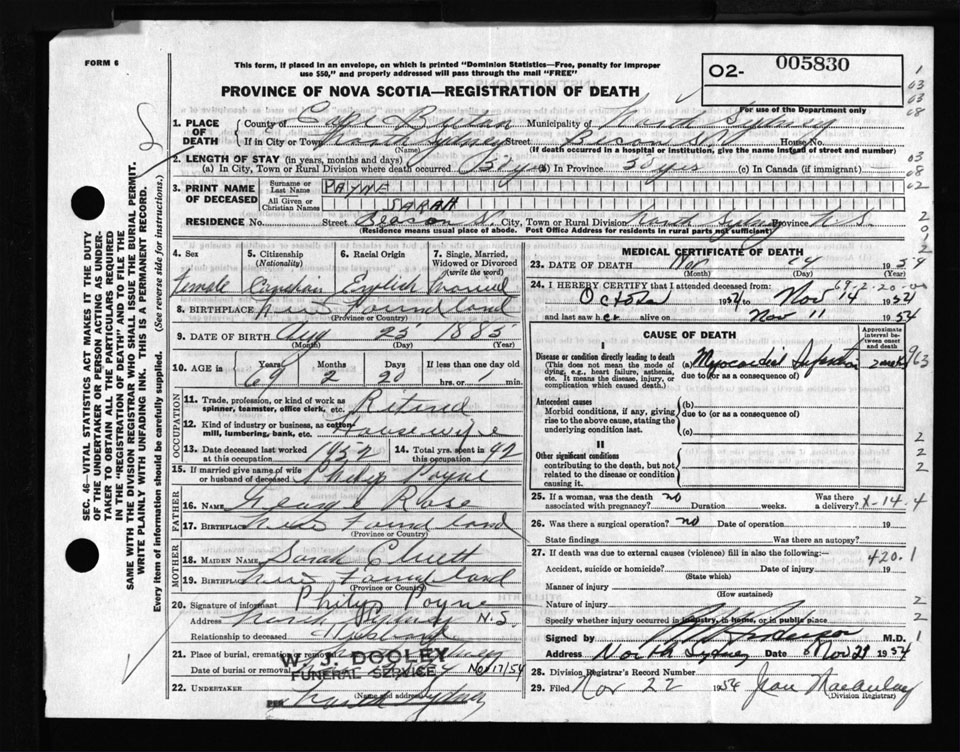 FORM 6
This form, if placed in an envelope, on which is printed “Dominion Statistics—Free, penalty for improper
use $50,” and properly addressed will pass through the mail “FREE”
PROVINCE OF NOVA SCOTIA—REGISTRATION OF DEATH
O2- 005830
For use of the Department only
1. PLACE OF DEATH
County of Cape Breton Municipality of North Sydney
If in City or Town North Sydney Street Beacon St. House No.
(Name) (If death occurred in a hospital or institution, give the name instead of street and number)
2. LENGTH OF STAY (in years, months and days)
(a) In City, Town or Rural Division where death occurred (b) In Province (c) In Canada (if immigrant)
3. PRINT NAME OF DECEASED
Surname or Last Name PAYNE
All Given or Christian Names SARAH
RESIDENCE No. Street Beacon St. City, Town or Rural Division North Sydney Province N.S.
(Residence means usual place of abode. Post Office Address for residents in rural parts not sufficient)
4. Sex Female
5. Citizenship (Nationality) Canadian
6. Racial Origin English
7. Single, Married, Widowed or Divorced (write the word) Married
8. BIRTHPLACE New Foundland
(Province or Country)
9. DATE OF BIRTH Aug 25 1885
(Month) (Day) (Year)
10. AGE in Years 69 Months 2 Days 20 If less than one day old
hrs. or min.
OCCUPATION
11. Trade, profession, or kind of work as spinner, teamster, office clerk, etc. Retired
12. Kind of industry or business, as cotton mill, lumbering, bank, etc. Housewife
13. Date deceased last worked at this occupation 1952
14. Total yrs. spent in this occupation 42
15. If married give name of wife or husband of deceased Philip Payne
FATHER
16. NAME George Rose
17. BIRTHPLACE New Foundland
(Province or Country)
MOTHER
18. MAIDEN NAME Sarah Cluett
19. BIRTHPLACE New Foundland
(Province or Country)
20. Signature of informant Philip Payne
Address North Sydney N.S.
Relationship to deceased Husband
21. Place of burial, cremation or removal
Date of burial or removal Nov 17/54
W. J. DOOLEY
FUNERAL SERVICE
22. UNDERTAKER
(Name and address)
PER North Sydney
MEDICAL CERTIFICATE OF DEATH
23. DATE OF DEATH Nov 14 1954
(Month) (Day)
24. I HEREBY CERTIFY that I attended deceased from:
October 1954 to Nov 14 1954
and last saw her alive on Nov 11 1954
CAUSE OF DEATH
Approximate interval between onset and death
I
Disease or condition directly leading to death
(This does not mean the mode of dying, e.g., heart failure, asthenia, etc. It means the disease, injury, or complication which caused death.)
(a) Myocardial Infarction
due to (or as a consequence of)
Antecedent causes
Morbid conditions, if any, giving rise to the above cause, stating the underlying condition last.
(b)
due to (or as a consequence of)
(c)
II
Other significant conditions
contributing to the death, but not related to the disease or condition causing it.
25. If a woman, was the death associated with pregnancy? no Duration weeks. Was there a delivery?
X-14-4
26. Was there a surgical operation? no Date of operation 19
State findings Was there an autopsy?
27. If death was due to external causes (violence) fill in also the following:—
420.1
Accident, suicide or homicide? Date of injury 19
(State which)
Manner of injury
(How sustained)
Nature of injury
Specify whether injury occurred in industry, in home, or in public place
Signed by M.D.
Address North Sydney Date Nov 29 1954
28. Division Registrar's Record Number
29. Filed Nov 22 1954 Jean MacAulay
(Division Registrar)
SEC. 46—VITAL STATISTICS ACT MAKES IT THE DUTY
OF THE UNDERTAKER OR PERSON ACTING AS UNDER-
TAKER TO OBTAIN ALL THE PARTICULARS REQUIRED
IN THE “REGISTRATION OF DEATH” AND TO FILE THE
SAME WITH THE DIVISION REGISTRAR WHO SHALL ISSUE THE BURIAL PERMIT.
WRITE PLAINLY WITH UNFADING INK. THIS IS A PERMANENT RECORD.
Every item of information should be carefully supplied. (See reverse side for instructions.)